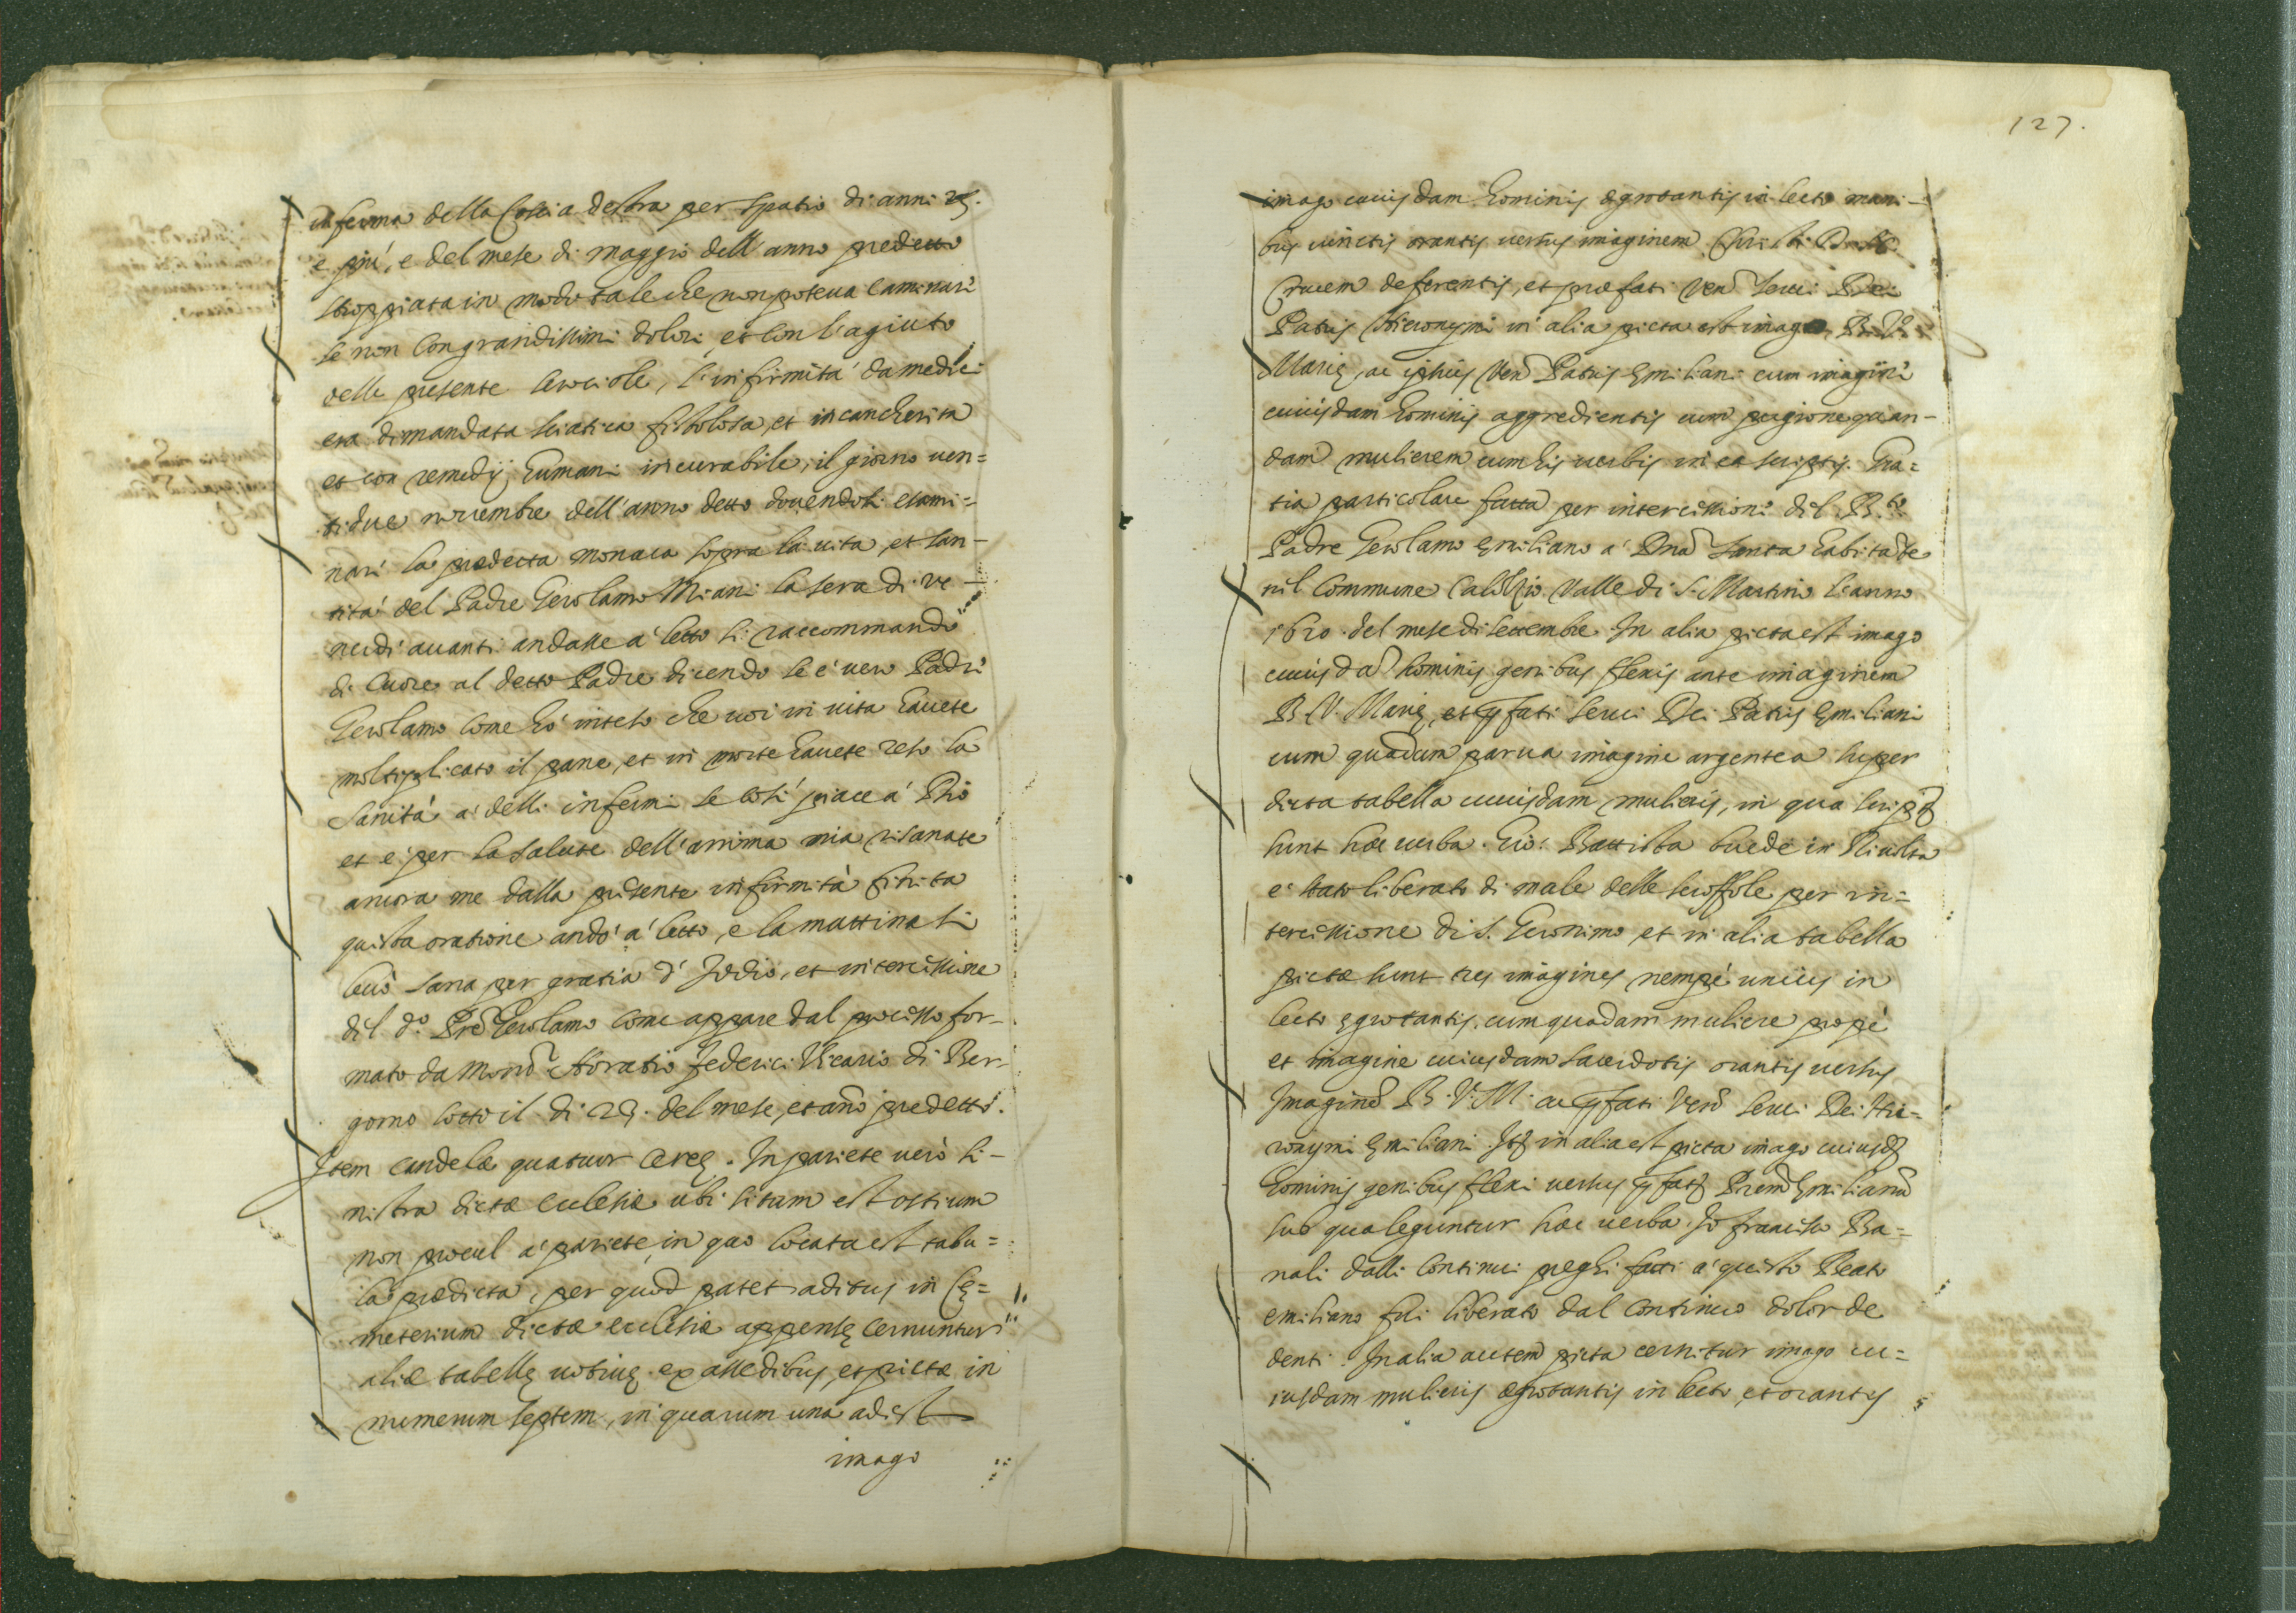 inferma della Coscia destra per spatio di anni 25.
e più, e del mese di maggio dell'anno predetto
stroppiata in modo tale che non poteva caminare
se non con grandissimi dolori, et con l'agiuto
delle presente crociole, l'infirmità da medici
era dimandata sciatica fistolosa, et incancherita
et con remedij humani incurabile, il giorno ven=
tidue novembre dell'anno detto dovendosi esami=
nare la predetta monaca sopra la vita, et san-
tità del Padre Gerolamo Miani la sera di ve-
nerdi avanti andasse a' letto si raccommandò
di cuore al detto Padre dicendo se è vero Padre
Gerolamo come hò inteso che voi in vita havete
moltiplicato il pane, et in morte havete reso la
sanità a' delli infermi se così piace a' Dio
et è per la salute dell'anima mia risanate
ancora me dalla presente infirmità finita
questa oratione andò a' letto, e la mattina si
levò sana per gratia d'Iddio, et intercessione
del do. Pre Gerolamo come appare dal processo for-
mato da Monsr Horatio Federici Vicario di Ber-
gomo sotto il di 29. del mese, et año predetto.
Item candelæ quatuor cereę. In pariete verò si-
nistra dictæ ecclesiæ ubi situm est ostium
non procul a' pariete in quo locata est tabu=
la prædicta, per quod patet aditus in Cę=
meterium dictæ ecclesiæ appensę cernuntur
aliæ tabellę votivę ex assedibus, et pictæ in
numerum septem, in quarum una adest
imago
127.
imago cuiusdam hominis ægrotantis in lecto mani-
bus iunctis orantis versus imaginem Christi
Crucem deferentis, et præfati Ven Servi Dei
Patris Hieronymi in alia picta est imago B. V.
Marię, ac ipsius Ven Patris Emiliani cum imagine
cuiusdam hominis aggredientis cum pugione quan-
dam mulierem cum his verbis in ea scriptis. Gra=
tia particolare fatta per intercessione del B.to
Padre Gerolamo Emiliano a' Dna Santa habitate
nel Commune Calolzio Valle di S. Martino l'anno
1620. del mese di settembre. In alia picta est imago
cuiusda hominis genibus flexis ante imaginem
B. V. Marię, et pfati Servi Dei Patris Emiliani
cum quadam parva imagine argentea super
dicta tabella cuiusdam mulieris, in qua script
sunt hæc verba. Gio: Battista in Rivolta
e' stato liberato di male delle scroffole per in=
tercessione di S. Geronimo et in alia tabella
pictæ sunt tres imagines nempè unius in
lecto ęgrotantis, cum quadam muliere propè
et imagine cuiusdam sacerdotis orantis versus
Imagine B. V. M. ac pfati Ven Servi Dei Hie-
ronymi Emiliani. Itz in alia est picta imago cuiusd
hominis genibus flexi versus pfat Prem Emilianu
sub qua leguntur hæc verba. Io Francesco Ba=
nali dalli continui preghi fatti a' questo Beato
emiliano fui liberato dal continuo dolor de
denti. In alia autem picta cernitur imago cu=
iusdam mulieris ægrotantis in lecto, et orantis